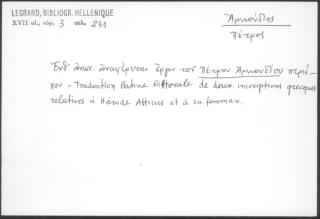 LEGRAND, BIBLIOGR. HELLENIQUE
XVII αἰ., τόμ. 3 σελ. 291
Ἀρνούδιος
Πέτρος
Ἔνθ' ἄνωτ. ἀναφέρεται ἔργον τοῦ Πέτρου Ἀρνουδίου περιέ-
χον "Traduction latine littérale de deux inscriptions grecques
relatives à Hérode Atticus et à sa femme".